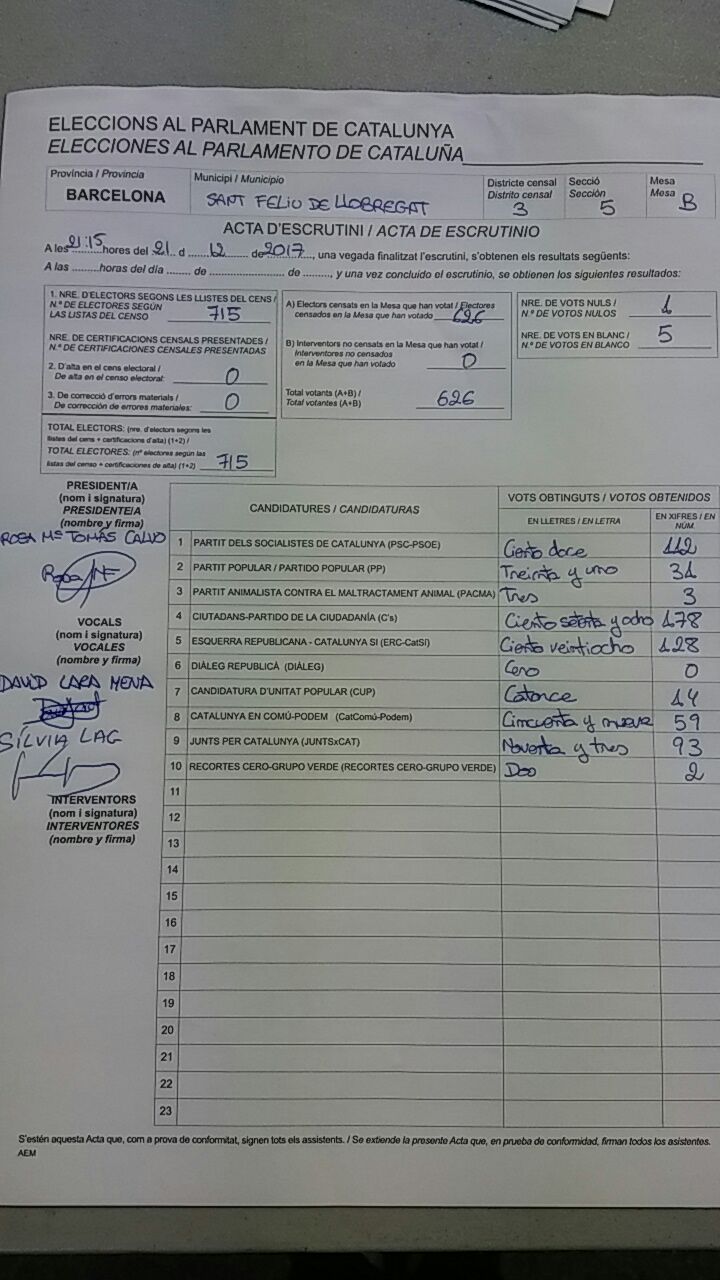 ELECCIONS AL PARLAMENT DE CATALUNYA
ELECCIONES AL PARLAMENTO DE CATALUÑA
Província / Provincia
BARCELONA
Municipi / Municipio
SANT FELIU DE LLOBREGAT
Districte censal
Distrito censal
3
Secció
Sección
5
Mesa
Mesa
B
ACTA D'ESCRUTINI / ACTA DE ESCRUTINIO
A les 21:15 hores del 21 d 12 de 2017, una vegada finalitzat l'escrutini, s'obtenen els resultats següents:
A las ......... horas del día ....... de ........................ de ........., y una vez concluido el escrutinio, se obtienen los siguientes resultados:
1. NRE. D'ELECTORS SEGONS LES LLISTES DEL CENS /
N.º DE ELECTORES SEGÚN
LAS LISTAS DEL CENSO 715
NRE. DE CERTIFICACIONS CENSALS PRESENTADES /
N.º DE CERTIFICACIONES CENSALES PRESENTADAS
2. D'alta en el cens electoral /
De alta en el censo electoral: 0
3. De correcció d'errors materials /
De corrección de errores materiales: 0
TOTAL ELECTORS: (nre. d'electors segons les
llistes del cens + certificacions d'alta) (1+2) /
TOTAL ELECTORES: (nº electores según las
listas del censo + certificaciones de alta) (1+2) 715
A) Electors censats en la Mesa que han votat / Electores
censados en la Mesa que han votado 626
B) Interventors no censats en la Mesa que han votat /
Interventores no censados
en la Mesa que han votado 0
Total votants (A+B) /
Total votantes (A+B) 626
NRE. DE VOTS NULS /
N.º DE VOTOS NULOS 1
NRE. DE VOTS EN BLANC /
N.º DE VOTOS EN BLANCO 5
PRESIDENT/A
(nom i signatura)
PRESIDENTE/A
(nombre y firma)
ROSA Mª TOMAS CALVO
VOCALS
(nom i signatura)
VOCALES
(nombre y firma)
DAVID LARA MENA
SÍLVIA LAG
INTERVENTORS
(nom i signatura)
INTERVENTORES
(nombre y firma)
CANDIDATURES / CANDIDATURAS
VOTS OBTINGUTS / VOTOS OBTENIDOS
EN LLETRES / EN LETRA
EN XIFRES / EN
NÚM.
1 PARTIT DELS SOCIALISTES DE CATALUNYA (PSC-PSOE) Ciento doce 112
2 PARTIT POPULAR / PARTIDO POPULAR (PP) Treinta y uno 31
3 PARTIT ANIMALISTA CONTRA EL MALTRACTAMENT ANIMAL (PACMA) Tres 3
4 CIUTADANS-PARTIDO DE LA CIUDADANÍA (C's) Ciento setenta y ocho 178
5 ESQUERRA REPUBLICANA - CATALUNYA SI (ERC-CatSí) Ciento veintiocho 128
6 DIÀLEG REPUBLICÀ (DIÀLEG) Cero 0
7 CANDIDATURA D'UNITAT POPULAR (CUP) Catorce 14
8 CATALUNYA EN COMÚ-PODEM (CatComú-Podem) Cincuenta y nueve 59
9 JUNTS PER CATALUNYA (JUNTSxCAT) Noventa y tres 93
10 RECORTES CERO-GRUPO VERDE (RECORTES CERO-GRUPO VERDE) Dos 2
11
12
13
14
15
16
17
18
19
20
21
22
23
S'estén aquesta Acta que, com a prova de conformitat, signen tots els assistents. / Se extiende la presente Acta que, en prueba de conformidad, firman todos los asistentes.
AEM